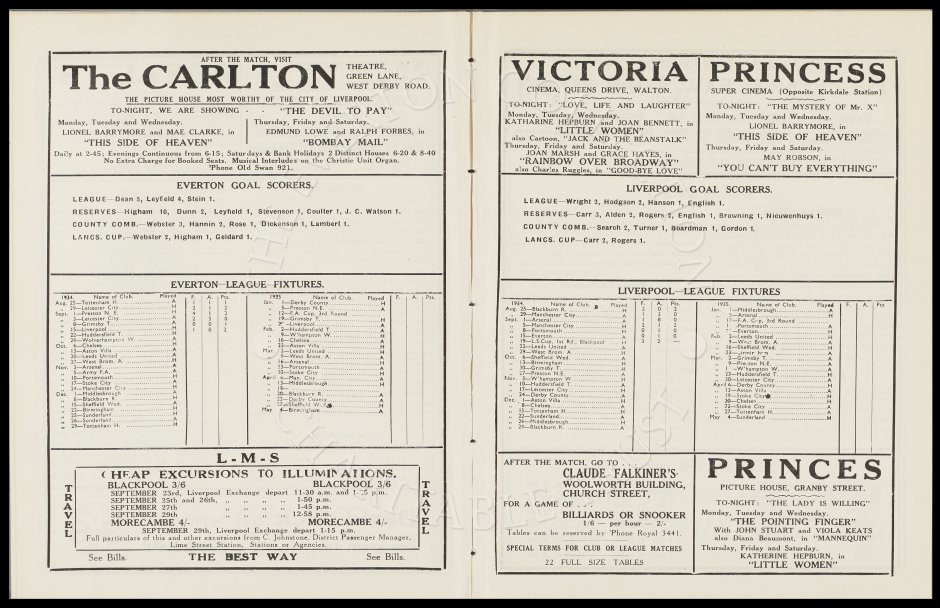 AFTER THE MATCH, VISIT
The CARLTON THEATRE, GREEN LANE, WEST DERBY ROAD.
THE PICTURE HOUSE MOST WORTHY OF THE CITY OF LIVERPOOL.
TO-NIGHT, WE ARE SHOWING . . "THE DEVIL TO PAY"
Monday, Tuesday and Wednesday.
LIONEL BARRYMORE and MAE CLARKE, in
"THIS SIDE OF HEAVEN"
Thursday, Friday and Saturday.
EDMUND LOWE and RALPH FORBES, in
"BOMBAY MAIL"
Daily at 2-45; Evenings Continuous from 6-15; Saturdays & Bank Holidays 2 Distinct Houses 6-20 & 8-40
No Extra Charge for Booked Seats. Musical Interludes on the Christie Unit Organ.
'Phone Old Swan 921.
EVERTON GOAL SCORERS.
LEAGUE—Dean 5, Leyfield 4, Stein 1.
RESERVES—Higham 10, Dunn 2, Leyfield 1, Stevenson 1, Coulter 1, J. C. Watson 1.
COUNTY COMB.—Webster 3, Hannin 2, Rose 1, Dickenson 1, Lambert 1.
LANCS. CUP.—Webster 2, Higham 1, Geldard 1.
EVERTON—LEAGUE FIXTURES.
1934. Name of Club. Played F. A. Pts.
Aug. 25—Tottenham H.
„ 29—Leicester City
Sept. 1—Preston N. E.
„ 3—Leicester City
„ 8—Grimsby T.
„ 15—Liverpool
„ 22—Huddersfield T.
„ 29—Wolverhampton W.
Oct. 6—Chelsea
„ 13—Aston Villa
„ 20—Leeds United
„ 27—West Brom. A.
Nov. 3—Arsenal
„ 5—Army F.A.
„ 10—Portsmouth
„ 17—Stoke City
„ 24—Manchester City
Dec. 1—Middlesbrough
„ 8—Blackburn R.
„ 15—Sheffield Wed.
„ 22—Birmingham
„ 25—Sunderland
„ 26—Sunderland
„ 29—Tottenham H.
1935. Name of Club. Played F. A. Pts.
Jan. 1—Derby County
„ 5—Preston N.E.
„ 12—F.A. Cup, 3rd Round
„ 19—Grimsby T.
„ Liverpool
Feb. Huddersfield T.
„ 9—W'hampton W.
„ 16—Chelsea
„ 23—Aston Villa
Mar. 2—Leeds United
„ 9—West Brom. A.
„ 16—Arsenal
„ 23—Portsmouth
„ 30—Stoke City
April Man. City
„ 13—Middlesbrough
„ 20—Blackburn R.
„ 22—Derby County
„ 27—Sheffield W.
May 4—Birmingham
L-M-S
TRAVEL
CHEAP EXCURSIONS TO ILLUMINATIONS.
BLACKPOOL 3/6 BLACKPOOL 3/6
SEPTEMBER 23rd, Liverpool Exchange depart 11-30 a.m. and p.m.
SEPTEMBER 25th and 26th, „ „ „ 1-50 p.m.
SEPTEMBER 27th „ „ „ 1-45 p.m.
SEPTEMBER 29th „ „ „ 12-58 p.m.
MORECAMBE 4/- MORECAMBE 4/-
SEPTEMBER 29th, Liverpool Exchange depart 1-15 p.m.
Full particulars of this and other excursions from C. Johnstone, District Passenger Manager,
Lime Street Station, Stations or Agencies.
TRAVEL
See Bills. THE BEST WAY See Bills.
VICTORIA
CINEMA, QUEENS DRIVE, WALTON.
TO-NIGHT: "LOVE, LIFE AND LAUGHTER"
Monday, Tuesday, Wednesday.
KATHARINE HEPBURN and JOAN BENNETT, in
"LITTLE WOMEN"
also Cartoon, "JACK AND THE BEANSTALK"
Thursday, Friday and Saturday.
JOAN MARSH and GRACE HAYES, in
"RAINBOW OVER BROADWAY"
also Charles Ruggles, in "GOOD-BYE LOVE"
PRINCESS
SUPER CINEMA (Opposite Kirkdale Station)
TO-NIGHT: "THE MYSTERY OF Mr. X"
Monday, Tuesday and Wednesday.
LIONEL BARRYMORE, in
"THIS SIDE OF HEAVEN"
Thursday, Friday and Saturday.
MAY ROBSON, in
"YOU CAN'T BUY EVERYTHING"
LIVERPOOL GOAL SCORERS.
LEAGUE—Wright 2, Hodgson 2, Hanson 1, English 1.
RESERVES—Carr 3, Alden 2, Rogers 2, English 1, Browning 1, Nieuwenhuys 1.
COUNTY COMB.—Search 2, Turner 1, Boardman 1, Gordon 1.
LANCS. CUP—Carr 2, Rogers 1.
LIVERPOOL—LEAGUE FIXTURES
1934. Name of Club. Played F. A. Pts.
Aug. 25—Blackburn R.
„ 29—Manchester City
Sept. 1—Arsenal
„ 5—Manchester City
„ 8—Portsmouth
„ 15—Everton
„ 19—L.S.Cup, 1st Rd., Blackpool
„ 22—Leeds United
„ 29—West Brom. A.
Oct. 6—Sheffield Wed.
„ 13—Birmingham
„ 20—Grimsby T.
„ 27—Preston N.E.
Nov. 3—W'hampton W.
„ 10—Huddersfield T.
„ 17—Leicester City
„ 24—Derby County
Dec. 1—Aston Villa
„ 8—Chelsea
„ 15—Tottenham H.
„ 22—Sunderland
„ 26—Middlesbrough
„ 29—Blackburn R.
1935. Name of Club. Played F. A. Pts.
Jan. 1—Middlesbrough
„ 5—Arsenal
„ F.A. Cup, 3rd Round
„ Portsmouth
„ Everton
Feb. Leeds United
„ 9—West Brom. A.
„ 16—Sheffield Wed.
„ 23—
Mar. 2—Grimsby T.
„ 9—Preston N.E.
„ W'hampton W.
„ 23—Huddersfield T.
„ Leicester City
April 6—Derby County
„ 13—Aston Villa
„ 19—Stoke City
„ 20—Chelsea
„ 22—Stoke City
„ 27—Tottenham H.
May 4—Sunderland
AFTER THE MATCH, GO TO . . .
CLAUDE FALKINER'S
WOOLWORTH BUILDING,
CHURCH STREET,
FOR A GAME OF . . .
BILLIARDS OR SNOOKER
1/6 — per hour — 2/-
Tables can be reserved by 'Phone Royal 3441.
SPECIAL TERMS FOR CLUB OR LEAGUE MATCHES
22 FULL SIZE TABLES
PRINCES
PICTURE HOUSE, GRANBY STREET.
TO-NIGHT: "THE LADY IS WILLING"
Monday, Tuesday and Wednesday.
"THE POINTING FINGER"
With JOHN STUART and VIOLA KEATS
also Diana Beaumont, in "MANNEQUIN"
Thursday, Friday and Saturday.
KATHERINE HEPBURN, in
"LITTLE WOMEN"